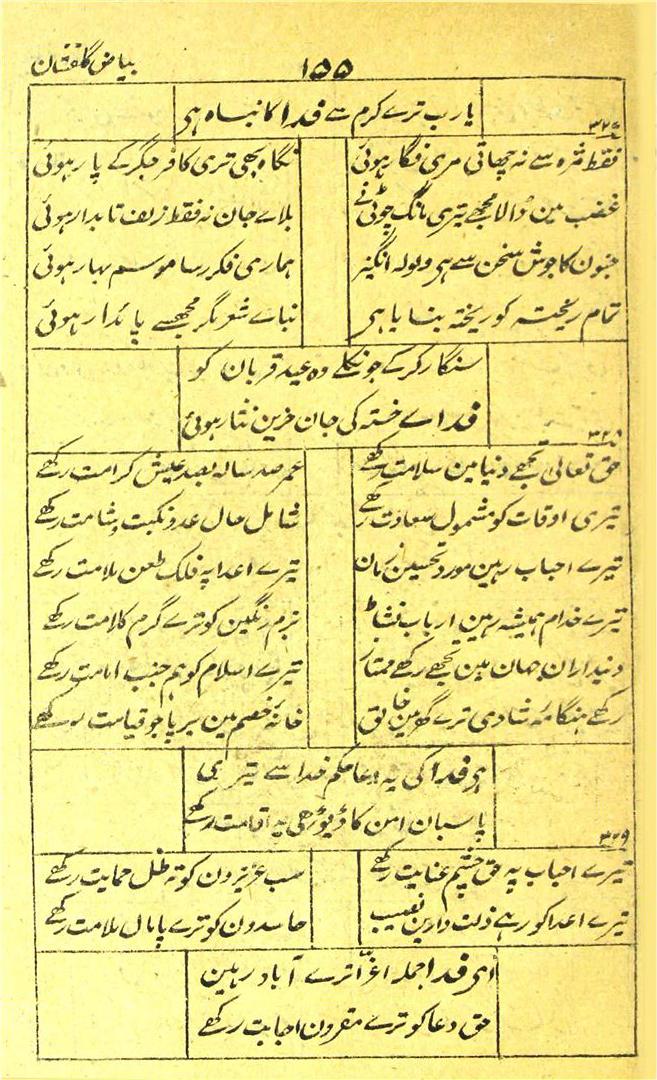 بیاض گلفشان
۱۵۵
یا رب ترے کرم سے فدا کا نباہ ہی
۳۲۷
فقط مژہ سے نہ چھاتی مری فگار ہوئی نگاہ بھی تری کافر جگر کے پار ہوئی
غضب مین ڈالا مجھے تیری مانگ چوٹی نے بلاے جان نہ فقط زلف تابدار ہوئی
جنون کا جوش سخن سے ہی ولولہ انگیز ہماری فکر رسا موسم بہار ہوئی
تمام ریختہ کو ریختہ بنایا ہی بناے شعر مگر مجھسے پائدار ہوئی
سنگار کرکے جو نکلے وہ عید قربان کو
فداے خستہ کی جان حزین نثار ہوئی
۳۲۸
حق تعالی تجھے دنیا مین سلامت رکھے عمر صد سالہ بصد عیش کرامت رکھے
تیری اوقات کو مشمول سعادت رکھے شامل حال عدو نکبت و شامت رکھے
تیرے احباب رہین مورد تحسین زمان تیرے اعدا پہ فلک طعن ملامت رکھے
تیرے خدام ہمیشہ رہین ارباب نشاط بزم رنگین کو ترے گرم کلامت رکھے
دینداران جہان مین تجھے رکھے ممتاز تیرے اسلام کو ہم جنب امامت رکھے
رکھے ہنگامۂ شادی ترے گھر مین خالق خانۂ خصم مین برپا جو قیامت رکھے
ہی فدا کی یہ دعا حکم خدا سے تیری
پاسبان امن کا ڈیوڑھی پہ اقامت رکھے
۳۲۹
تیرے احباب پہ حق چشم عنایت رکھے سب عزیزون کو تہ ظل حمایت رکھے
تیرے اعدا کو رہے ذلت دارین نصیب حاسدون کو ترے پامال ملامت رکھے
اہی فدا جملہ اعزا ترے آباد رہین
حق دعا کو ترے مقرون اجابت رکھے